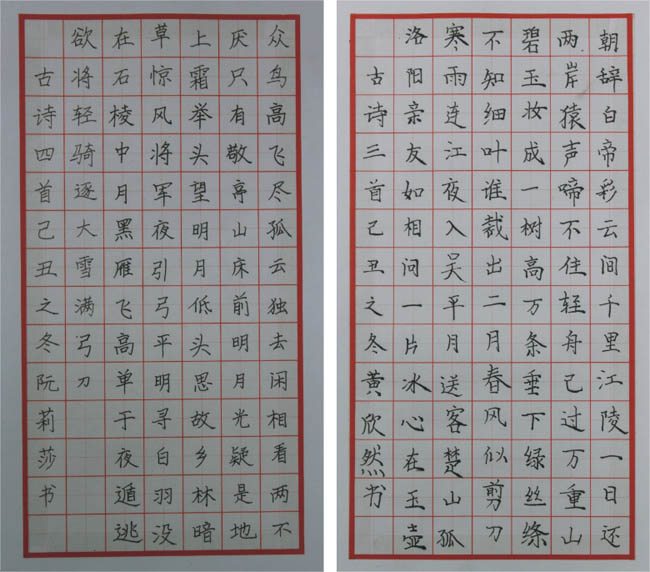 众鸟高飞尽孤云独去闲相看两不
厌只有敬亭山床前明月光疑是地
上霜举头望明月低头思故乡林暗
草惊风将军夜引弓平明寻白羽没
在石棱中月黑雁飞高单于夜遁逃
欲将轻骑逐大雪满弓刀
古诗四首己丑之冬阮莉莎书
朝辞白帝彩云间千里江陵一日还
两岸猿声啼不住轻舟已过万重山
碧玉妆成一树高万条垂下绿丝绦
不知细叶谁裁出二月春风似剪刀
寒雨连江夜入吴平月送客楚山孤
洛阳亲友如相问一片冰心在玉壶
古诗三首己丑之冬黄欣然书